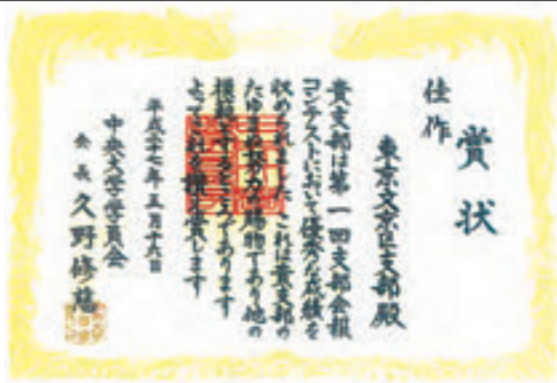 賞状
佳作
東京文京区支部殿
貴支部は第一回支部会報
コンテストにおいて優秀な成績を
収められました これは貴支部の
たゆまぬ努力の賜物であり他の
模範とするところであります
よってこれを横を賞します
平成二十七年五月十六日
中央大学学員会
会長 久野修慈